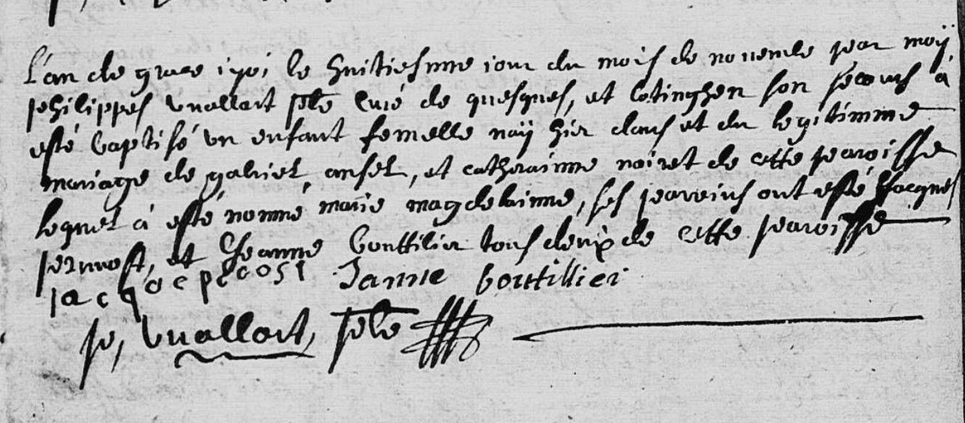 L'an de grace 1701 le huitiesme iour du mois de nouembre par moÿ
philippes vuallart pbre curé de quesques, et lotinghen son secours à
esté baptisé vn enfant femelle naÿ hier dans et du legitimme
mariage de gabriel ansel, et catherainne noiret de cette paroisse
lequel à esté nommé marie magdelainne, ses parains ont esté Jacques
preuvost, et Jeanne bouttilier tous deux de cette paroisse
Janne bouttillier
p, vuallart, pbre